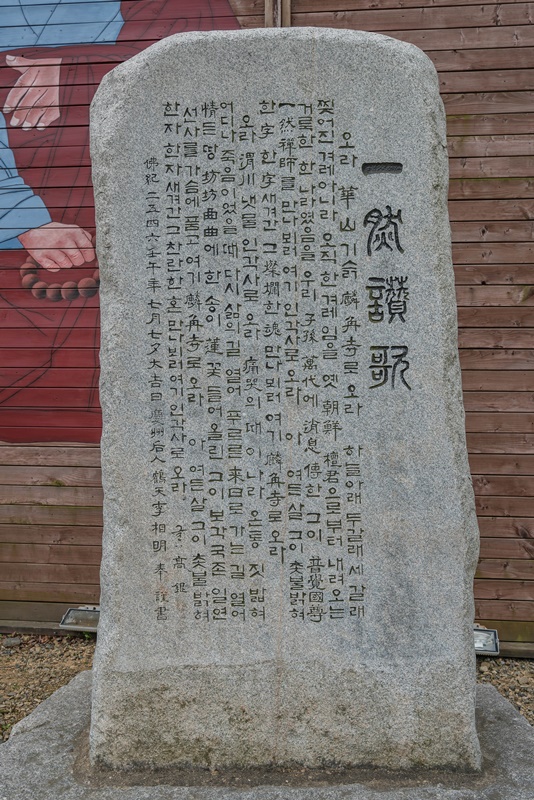 一然讚歌
오라 華山 기슭 麟角寺로 오라 하늘아래 두갈래 세 갈래
찢어진 겨레아니라 오직 한겨레임을 옛 朝鮮 檀君으로부터 내려오는
거룩한 한나라였음을 우리 子孫 萬代에 消息 傳한 그이 普覺國尊
一然禪師를 만나뵈러 여기 인각사로 오라 아 여든살 그이 촛불밝혀
한字 한字 새겨간 그 燦爛한 魂 만나뵈러 여기 麟角寺로 오라
오라 渭川 냇물 인각사로 오라 痛哭의 때 이나라 온통 짓밟혀
어디나 죽음이었을때 다시 삶의길 열어 푸르른 來日로 가는길 열어
情든 땅 坊坊曲曲에 한송이 蓮꽃 들어올린 그이 보각국존 일연
선사를 가슴에 품고 여기 麟角寺로 오라 아 여든살 그이 촛불밝혀
한자 한자 새겨간 그 찬란한 혼 만나뵈러 여기 인각사로 오라 글 高銀
佛紀二五四六壬午年 七月七夕大吉日 后人 鶴天 李相明 奉 書